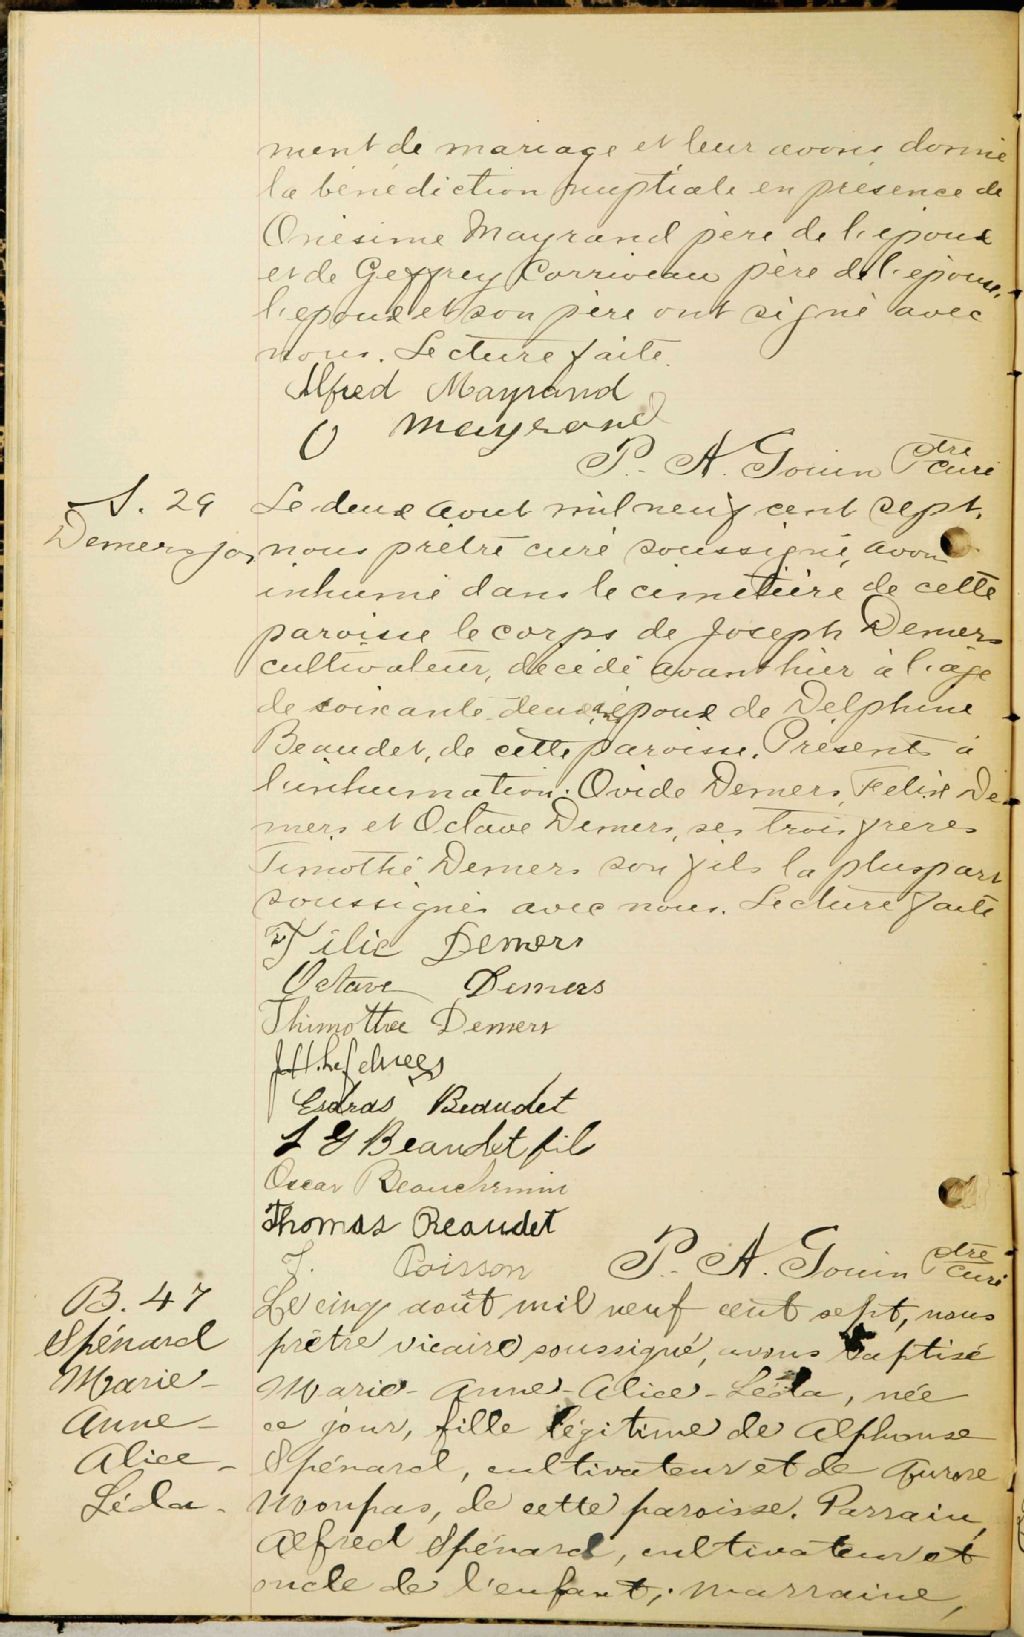 ment de mariage et leur avons donné
la bénédiction nuptiale en présence de
Onésime Mayrand père de l'époux
et de Geffrey Corriveau père de l'épouse.
l'époux et son père ont signé avec
nous. Lecture faite.
Alfred Mayrand
O Mayrand
P. A. Gouin Ptre curé
S. 29
Demers Jos
Le deux aout mil neuf cent sept,
nous prêtre curé soussigné, avons
inhumé dans le cimetière de cette
paroisse le corps de Joseph Demers
cultivateur, décédé avant hier à l'âge
de soixante deux ans époux de Delphine
Beaudet, de cette paroisse. Présents à
l'inhumation: Ovide Demers, Felix De-
mers et Octave Demers, ses trois frères
Timothé Demers son fils la pluspart
soussignés avec nous. Lecture faite
Félix Demers
Octave Demers
Thimothee Demers
Esdras Beaudet
Beaudet fils
Oscar Beauchemin
Thomas Beaudet
J. Poisson P. A. Gouin Ptre curé
B. 47
Spénard
Marie-
Anne-
Alice-
Léda-
Le cinq août mil neuf cent sept, nous
prêtre vicaire soussigné, avons baptisé
Marie-Anne-Alice-Léda, née
ce jour, fille légitime de Alphonse
Spénard, cultivateur et de Aurore
Moupas, de cette paroisse. Parrain,
Alfred Spénard, cultivateur et
oncle de l'enfant; marraine,